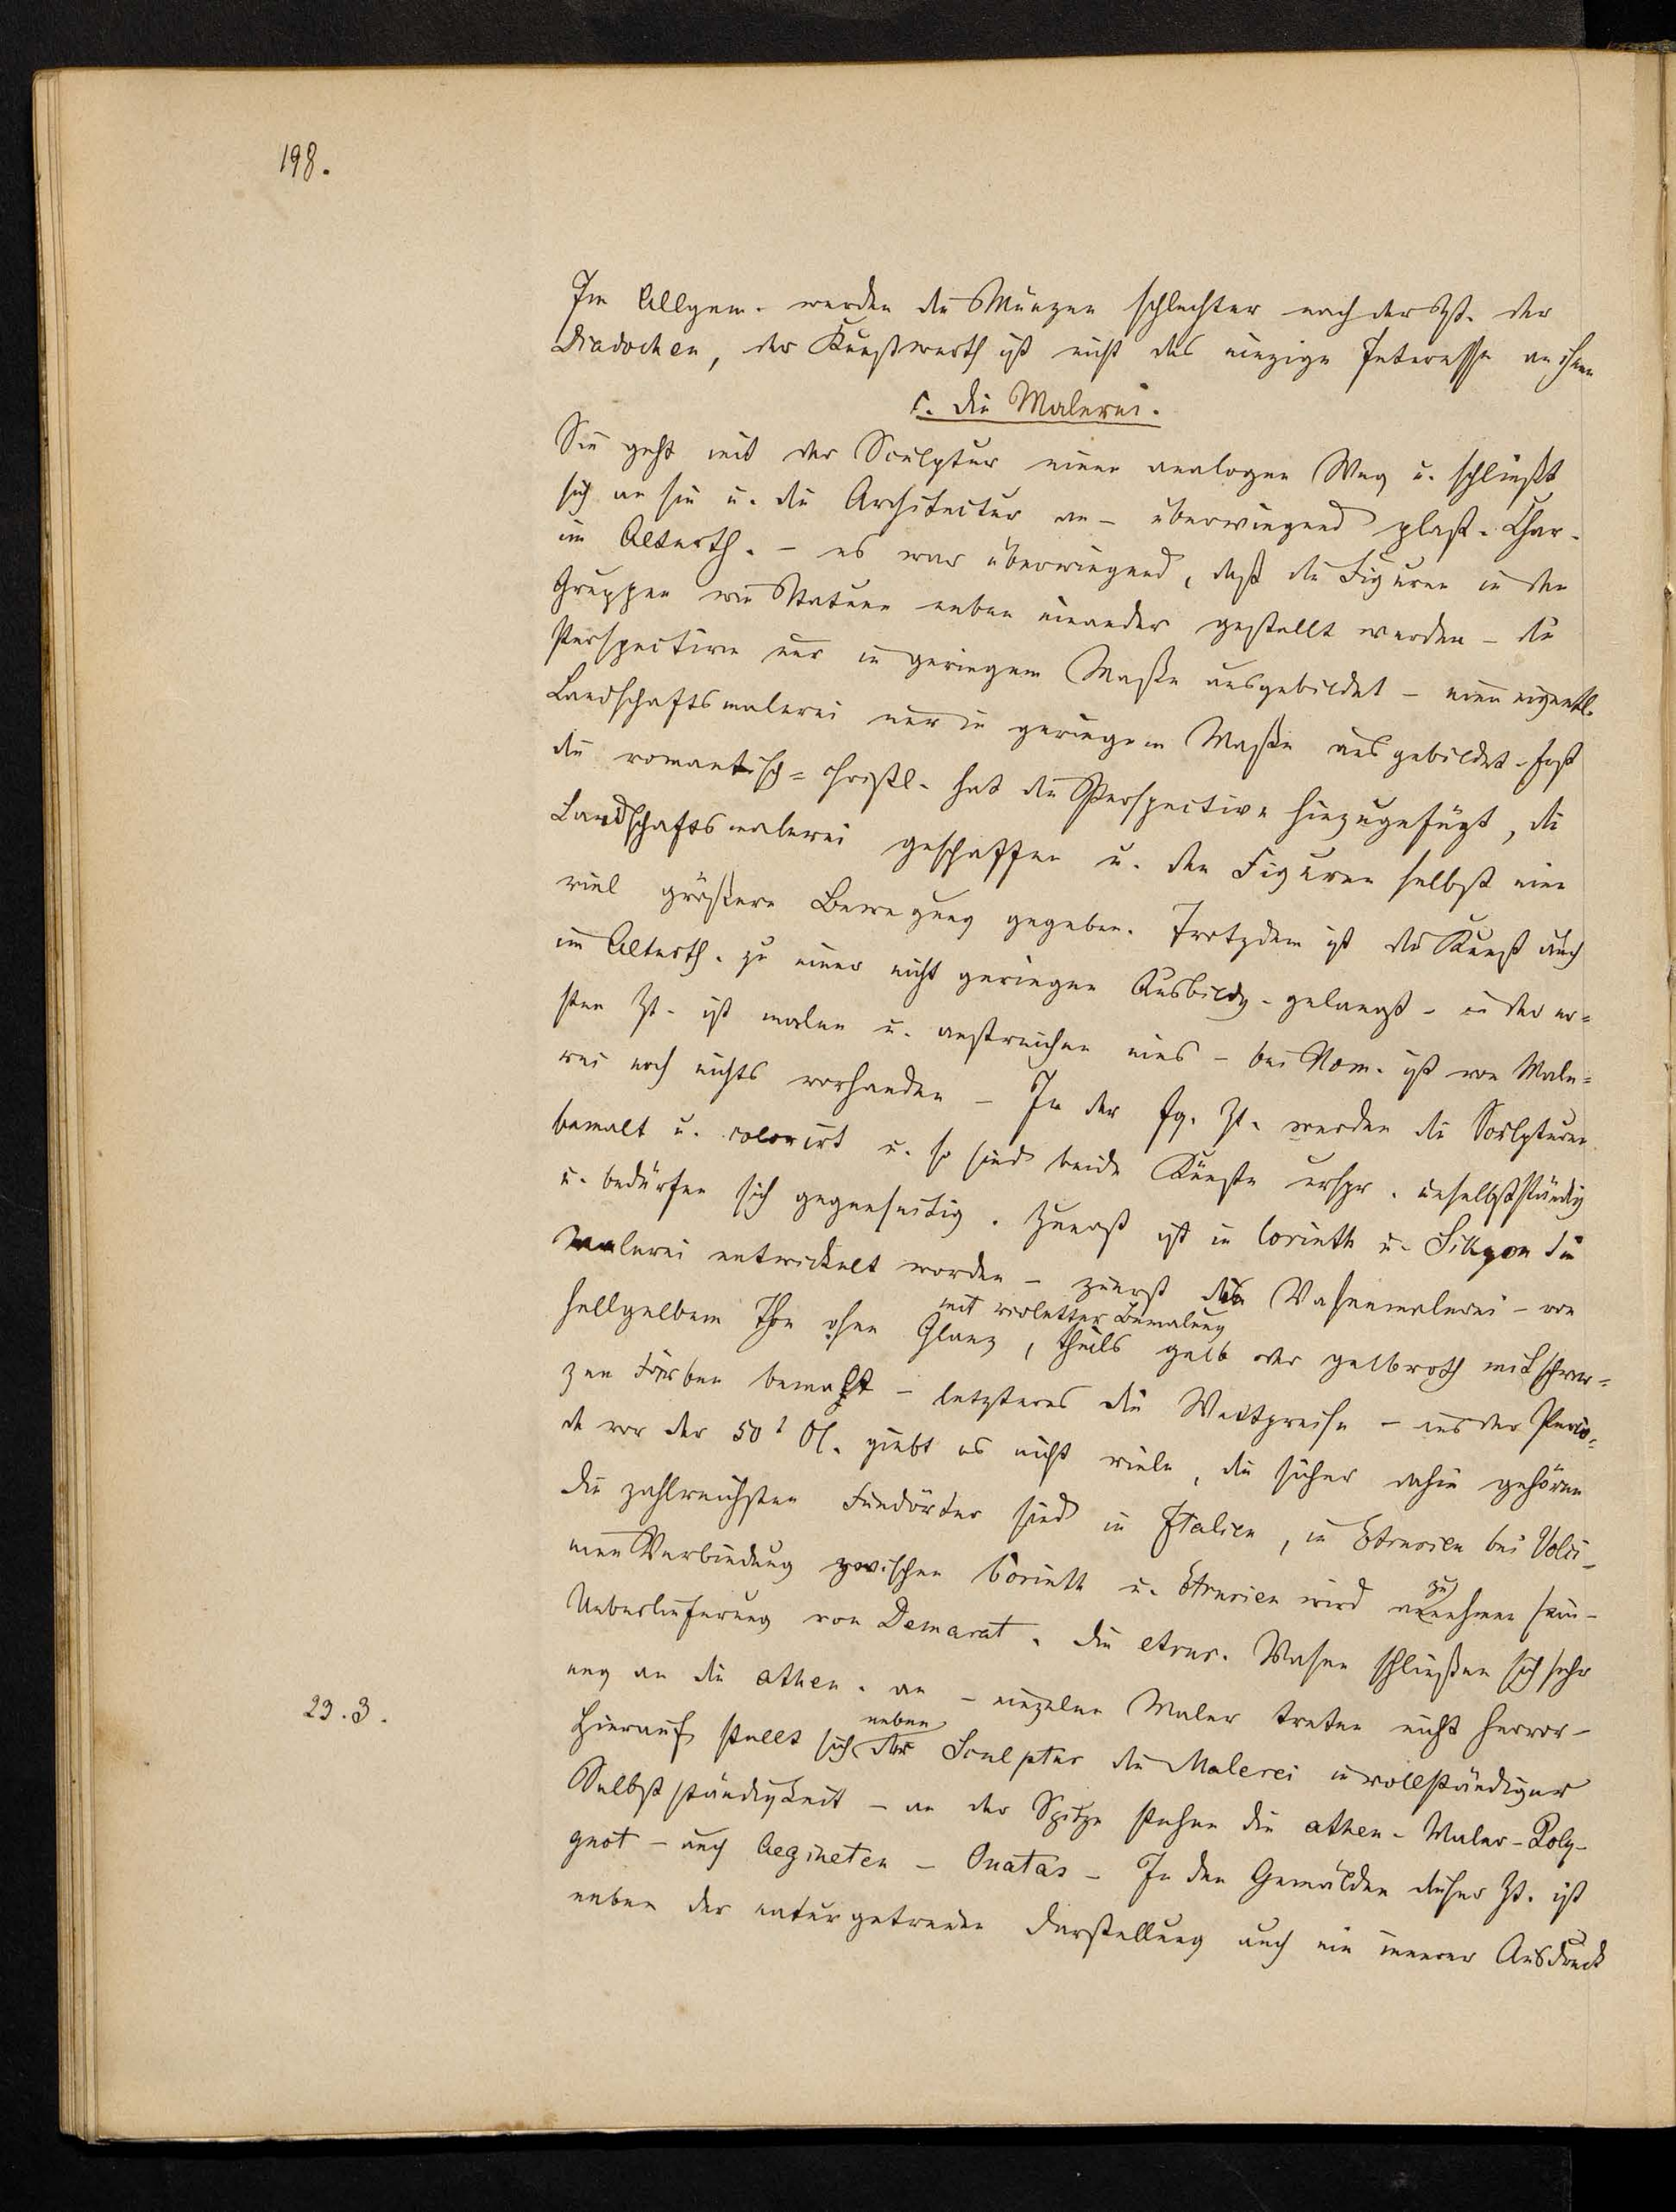 198.
Im Allgem. werden die Münzen schlechter nach der Zt. der
Diadochen, der Kunstwerth ist nicht das einzige Interesse an ihnen
c. Die Malerei.
Sie geht mit der Sculptur einen analogen Weg u. schließt
sich an sie u. die Architectur an – überwiegend plast. Char.
im Alterth. – es war überwiegend, daß die Figuren in den
Gruppen wie Statuen neben einander gestellt werden – die
Perspective nur in geringem Maße ausgebildet – eine eigentl.
Landschaftsmalerei nur in geringem Maße ausgebildet – erst
die romantisch=christl. hat die Perspective hinzugefügt, die
Landschaftsmalerei geschaffen u. den Figuren selbst eine
viel größere Bewegung gegeben. Trotzdem ist die Kunst auch
im Alterth. zu einer nicht geringen Ausbildg. gelangt – in der er=
sten Zt. ist malen u. anstreichen eins – bei Hom. ist von Male=
rei noch nichts vorhanden – In der fg. Zt. werden die Sculpturen
bemalt u. colorirt u. so sind beide Künste urspr. unselbstständig
u. bedürfen sich gegenseitig. Zuerst ist in Corinth u. Sikyon die
Malerei entwickelt worden – zuerst die Vasenmalerei – von
mit violetter Bemalung
hellgelbem Thon ohne Glanz, theils gelb oder gelbroth mit schwar=
zen Farben bemalt – letzteres die Wettpreise – aus der Perio=
de vor der 50t Ol. giebt es nicht viele, die sicher dahin gehören
Die zahlreichsten Fundörter sind in Italien, in Etrurien bei Volci –
eine Verbindung zwischen Corinth u. Etrurien wird anzunehmen sein –
Ueberlieferung von Demarat. Die etrur. Vasen schließen sich sehr
eng an die athen. an – einzelne Maler treten nicht hervor –
23.3.
Hierauf stellt sich neben der Sculptur die Malerei in vollständiger
Selbstständigkeit – an der Spitze stehen die athen. Maler – Poly-
gnot – auch Aegineten – Onatas – In den Gemälden dieser Zt. ist
neben der naturgetreuen Darstellung auch ein innerer Ausdruck